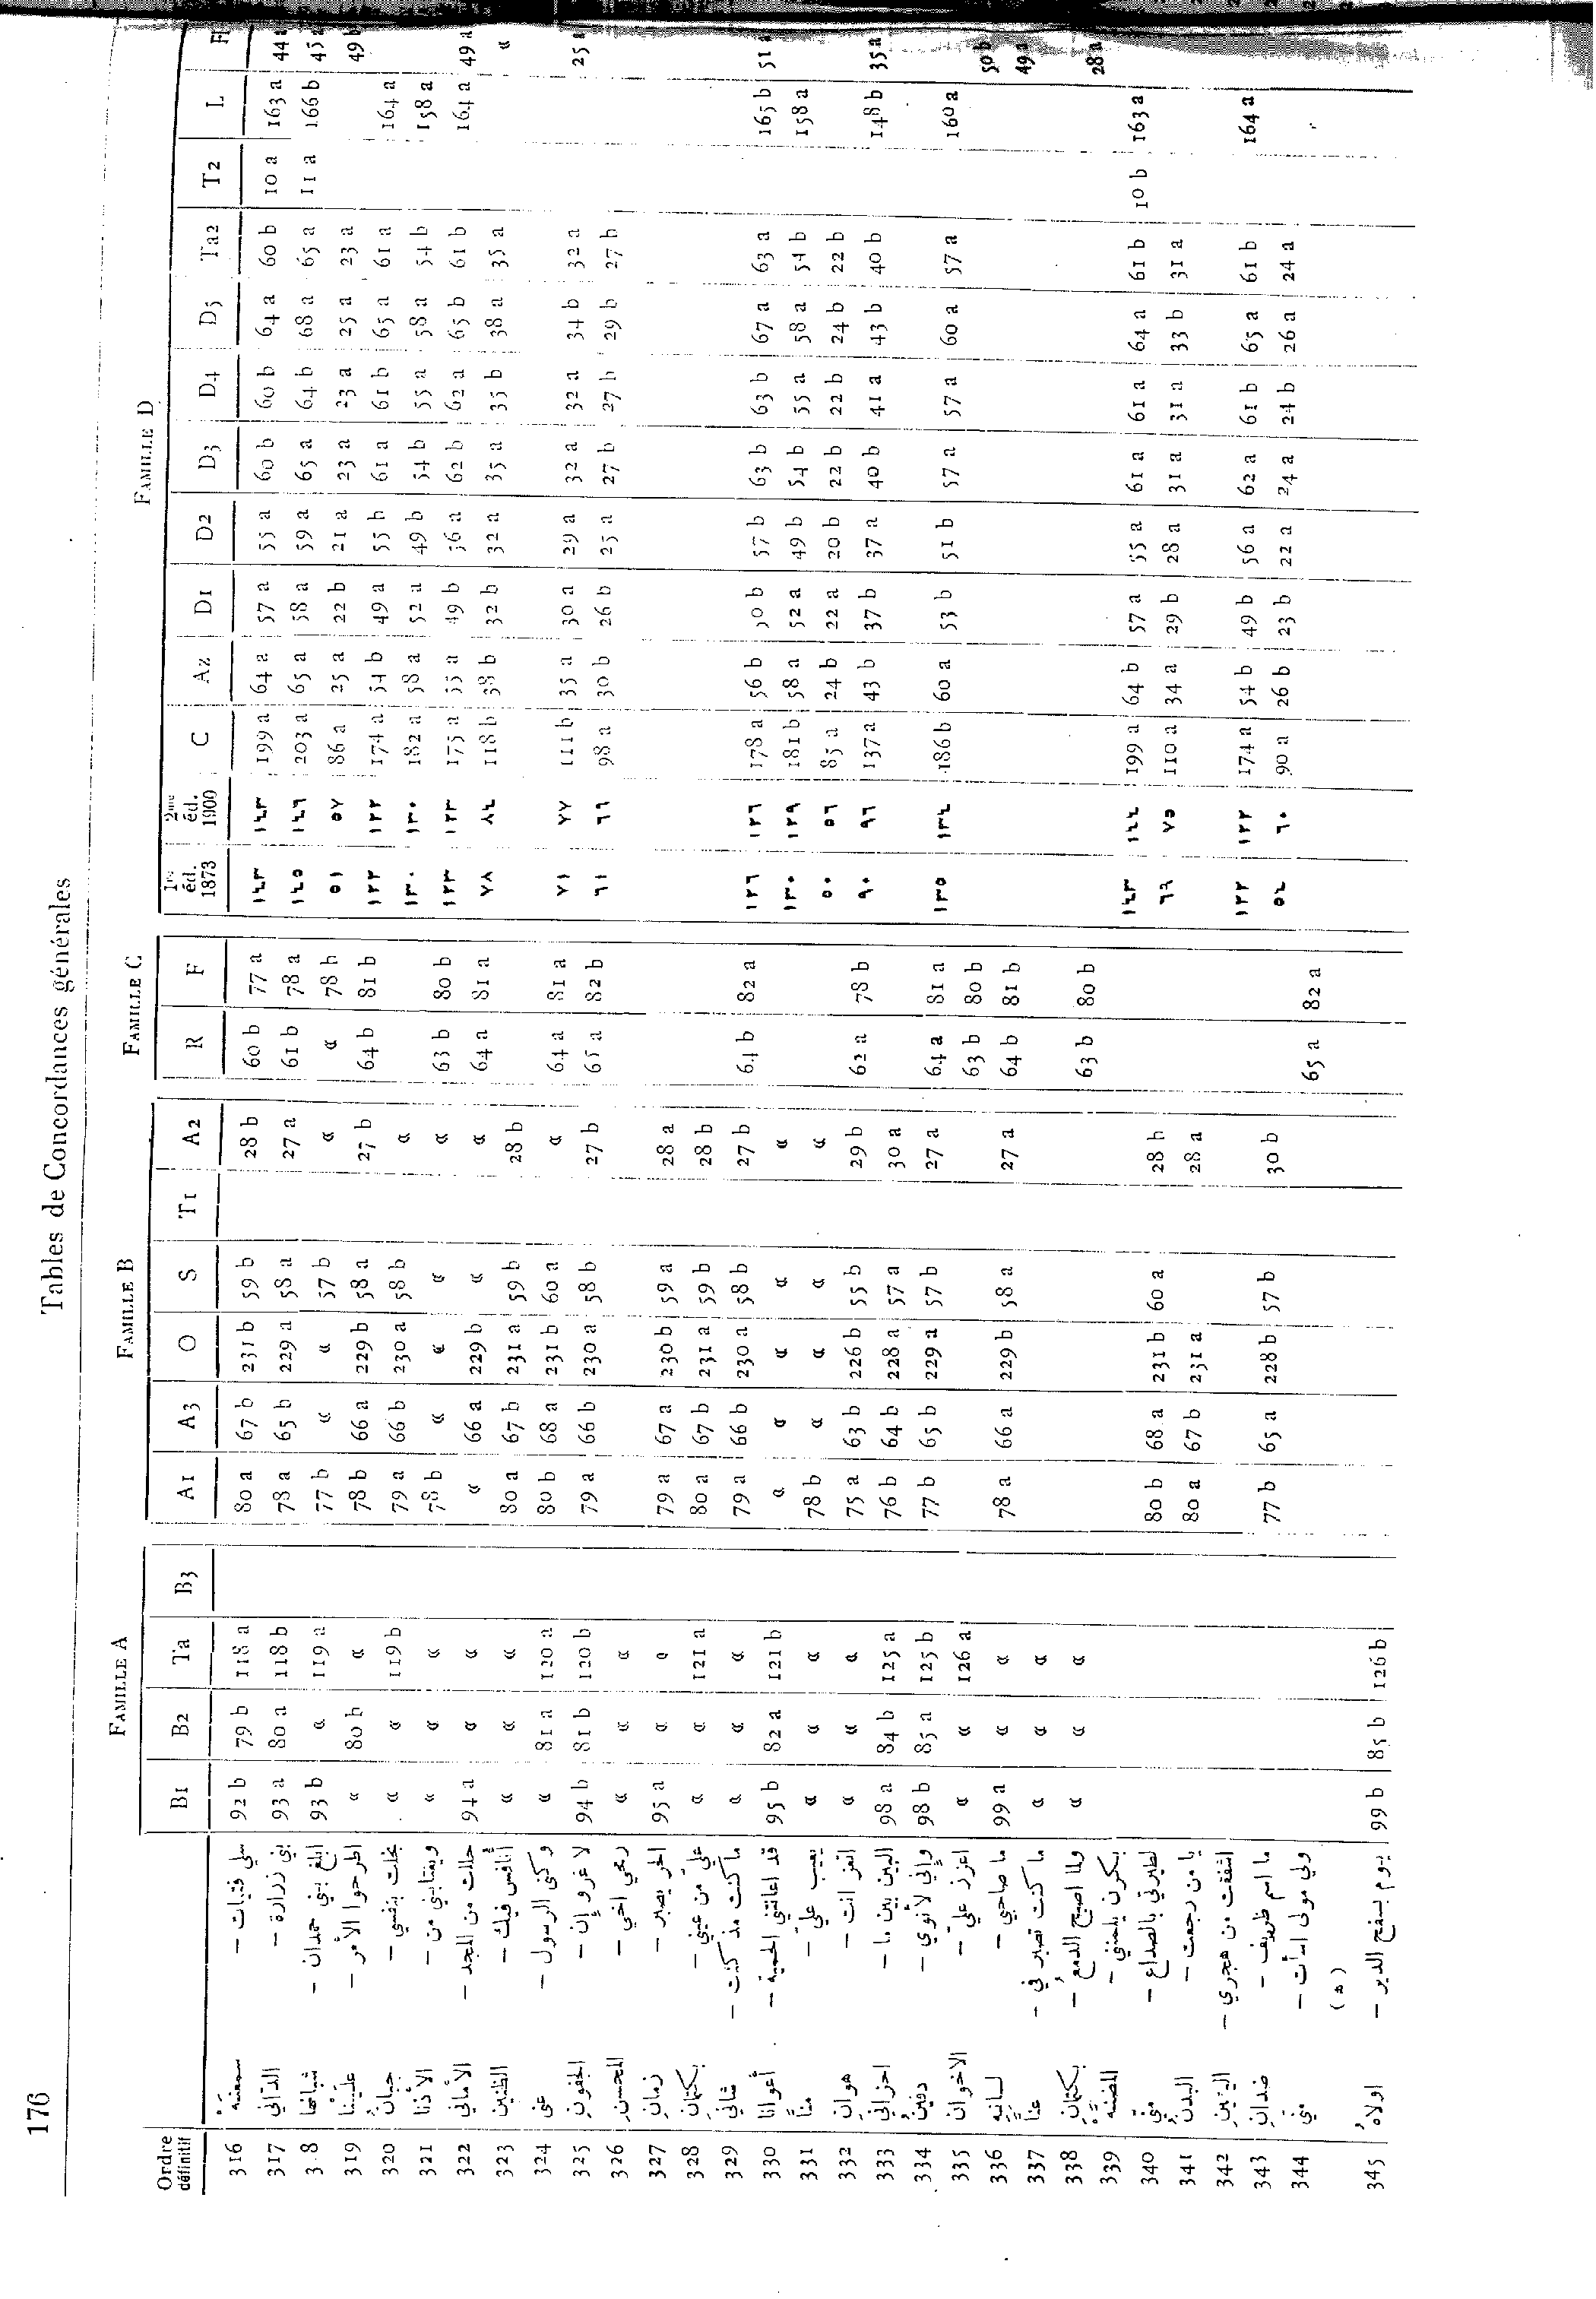 176 Tables de Concordances générales
FAMILLE A FAMILLE B FAMILLE C FAMILLE D
Ordre définitif B1 B2 Ta B3 A1 A3 O S T1 A2 R F 1re éd. 1873 2me éd. 1900 C Az D1 D2 D3 D4 D5 Ta2 T2 L H
316 سمعنهْ سلي فتيات — 92 b 79 b 118 a 80 a 67 b 231 b 59 b 28 b 60 b 77 a ١٤٣ ١٤٣ 199 a 64 a 57 a 55 a 60 b 60 b 64 a 60 b 10 a 163 a 44 a
317 الدّاني بني زرارة — 93 a 80 a 118 b 78 a 65 b 229 a 58 a 27 a 61 b 78 a ١٤٥ ١٤٩ 203 a 65 a 58 a 59 a 65 a 64 b 68 a 65 a 11 a 166 b 45 a
3·8 شبانها ابلغ بني حمدان — 93 b « 119 a 77 b « « 57 b « « 78 b ٥١ ٥٧ 86 a 25 a 22 b 21 a 23 a 23 a 25 a 23 a 49 b
319 علينا اطرحوا الأمر — « 80 b « 78 b 66 a 229 b 58 a 27 b 64 b 81 b ١٢٢ ١٢٢ 174 a 54 b 49 a 55 b 61 a 61 b 65 a 61 a 164 a
320 جبانُ بخلت بنفسي — « « 119 b 79 a 66 b 230 a 58 b « ١٣٠ ١٣٠ 182 a 58 a 52 a 49 b 54 b 55 a 58 a 54 b 158 a
321 الأذنا ويغتابني من — « « « 78 b « « « « 63 b 80 b ١٢٣ ١٢٣ 175 a 55 a 49 b 56 a 62 b 62 a 65 b 61 b 164 a 49 a
322 الأماني حللت من المجد — 94 a « « « 66 a 229 b « « 64 a 81 a ٧٨ ٨٤ 118 b 38 b 32 b 32 a 35 a 35 b 38 a 35 a «
323 الظنين أنافس فيك — « « « 80 a 67 b 231 a 59 b 28 b
324 عني وكنى الرسول — « 81 a 120 a 80 b 68 a 231 b 60 a « 64 a 81 a ٧١ ٧٧ 111 b 35 a 30 a 29 a 32 a 32 a 34 b 32 a 25 a
325 الجفونِ لا غرو إن — 94 b 81 b 120 b 79 a 66 b 230 a 58 b 27 b 65 a 82 b ٦١ ٦٦ 98 a 30 b 26 b 25 a 27 b 27 b 29 b 27 b
326 المحسنِ ربحي اخي — « « «
327 زمانِ الحر يصبر — 95 a « « 79 a 67 a 230 b 59 a 28 a
328 بكتمانِ عليّ من عيني — « « 121 a 80 a 67 b 231 a 59 b 28 b
329 شاني ما كنت مذ كنت — « « « 79 a 66 b 230 a 58 b 27 b 64 b 82 a ١٢٦ ١٢٦ 178 a 56 b 50 b 57 b 63 b 63 b 67 a 63 a 165 b 51 a
330 أعوانا قد اعانتني الحمية — 95 b 82 a 121 b « « « « « ١٣٠ ١٢٩ 181 b 58 a 52 a 49 b 54 b 55 a 58 a 54 b 158 a
331 منّا يعيب عليّ — « « « 78 b « « « « ٥٠ ٥٦ 85 a 24 b 22 a 20 b 22 b 22 b 24 b 22 b
332 هوانِ اتعز انت — « « « 75 a 63 b 226 b 55 b 29 b 62 a 78 b ٩٠ ٩٦ 137 a 43 b 37 b 37 a 40 b 41 a 43 b 40 b 148 b 35 a
333 احزاني البين بين ما — 98 a 84 b 125 a 76 b 64 b 228 a 57 a 30 a
334 دفينُ وإني لأنوي — 98 b 85 a 125 b 77 b 65 b 229 a 57 b 27 a 64 a 81 a ١٣٥ ١٣٤ 186 b 60 a 53 b 51 b 57 a 57 a 60 a 57 a 160 a
335 الاخوان اعزز عليّ — « « 126 a 63 b 80 b 50 b
336 لسانيه ما صاحبي — 99 a « « 78 a 66 a 229 b 58 a 27 a 64 b 81 b 49 a
337 عنّا ما كنت تصبر في — « « «
338 بكتمانِ ولما اصبح الدمع — « « « 63 b 80 b 28 a
339 المضنّهْ بكرن يلمنني — ١٤٣ ١٤٤ 199 a 64 b 57 a 55 a 61 a 61 a 64 a 61 b 10 b 163 a
340 منّي لطيرتي بالصداع — 80 b 68 a 231 b 60 a 28 b ٦٩ ٧٥ 110 a 34 a 29 b 28 a 31 a 31 a 33 b 31 a
341 البدنُ يا من رجعت — 80 a 67 b 231 a 28 a
342 اشفقت من هجري — ١٢٢ ١٢٢ 174 a 54 b 49 b 56 a 62 a 61 b 65 a 61 b 164 a
343 ضدانِ ما اسم ظريف — 77 b 65 a 228 b 57 b 30 b ٥٤ ٦٠ 90 a 26 b 23 b 22 a 24 a 24 b 26 a 24 a
344 مني ولي مولى اسأت — 65 a 82 a
(ه)
345 اولاهُ يوم بسفح الدير — 99 b 85 b 126 b